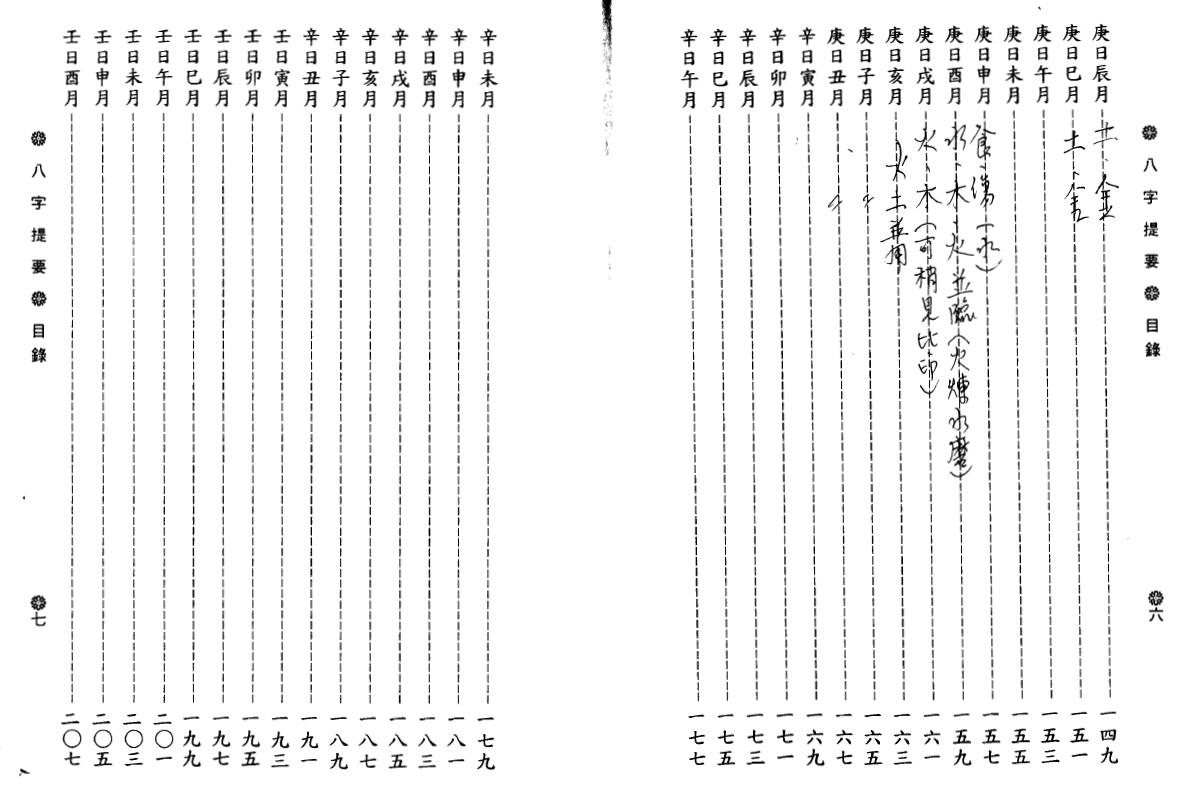 八字提要 目錄 六
庚日辰月 土、金 一四九
庚日巳月 土、金 一五一
庚日午月 一五三
庚日未月 一五五
庚日申月 食、傷(水) 一五七
庚日酉月 水、木、火並臨(火煉水磨) 一五九
庚日戌月 火、木(可稍見比印) 一六一
庚日亥月 火土並用 一六三
庚日子月 〃 一六五
庚日丑月 〃 一六七
辛日寅月 一六九
辛日卯月 一七一
辛日辰月 一七三
辛日巳月 一七五
辛日午月 一七七
辛日未月 一七九
辛日申月 一八一
辛日酉月 一八三
辛日戌月 一八五
辛日亥月 一八七
辛日子月 一八九
辛日丑月 一九一
壬日寅月 一九三
壬日卯月 一九五
壬日辰月 一九七
壬日巳月 一九九
壬日午月 二〇一
壬日未月 二〇三
壬日申月 二〇五
壬日酉月 二〇七
八字提要 目錄 七